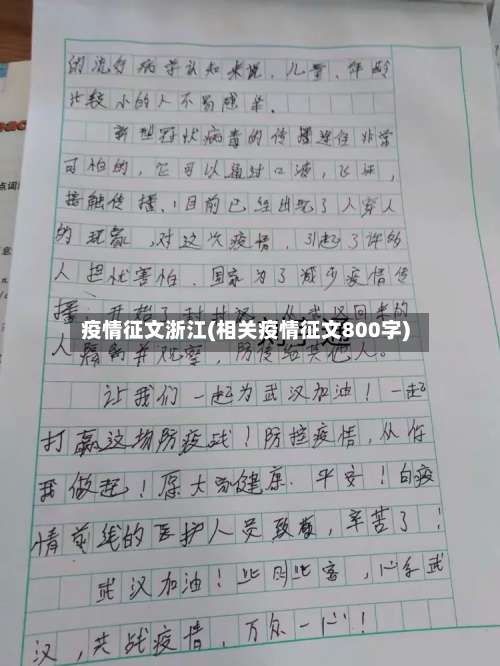 的流行病学认知来说,儿童、年龄
比较小的人不易感染.
新型冠状病毒的传播途径非常
可怕的,它可以通过口液,飞沫,
接触传播,目前已经出现了人穿人
的现象,对这次疫情,引起了许多
人担忧害怕.国家为了减少疫情传
播,开始了封
回来的
疫情征文浙江(相关疫情征文800字)
人隔离并观察,防传给其他人。
让我们一起为武汉加油!一起
打赢这场防疫战!防控疫情,从你
我做起!愿大家健康.平安!向疫
情前线的医护人员致敬,辛苦了!
武汉加油!此时此客,心系武
汉,共战疫情,万众一心!
点词